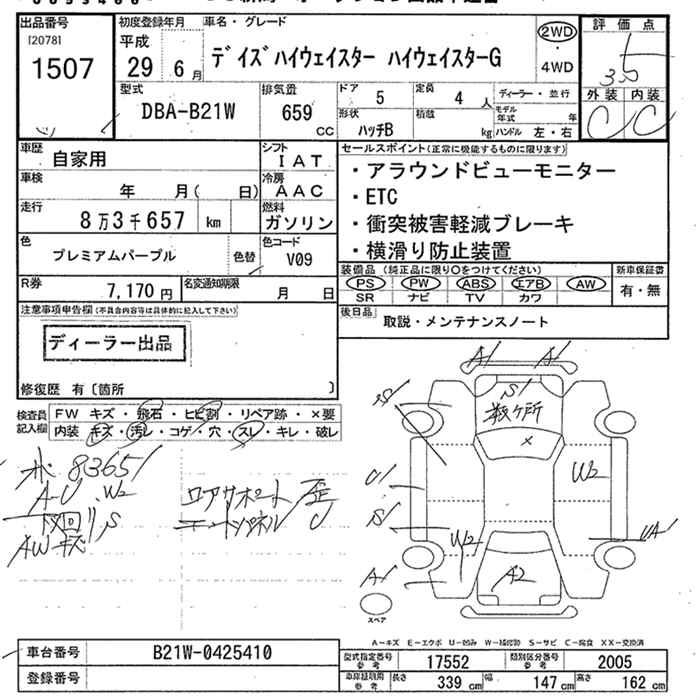 出品番号
I20781
1507
初度登録年月
平成
29 6月
車名・グレード
デイズハイウェイスター ハイウェイスターG
2WD
・
4WD
評価点
3.5
外装 内装
C C
型式
DBA-B21W
排気量
659
CC
ドア
5
定員
4 人
形状
ハッチB
積載
kg
ディーラー・並行
モデル年式 年
ハンドル 左・右
車歴
自家用
シフト
IAT
車検
年 月( 日)
冷房
AAC
走行
8万3千657 km
燃料
ガソリン
色
プレミアムパープル
色替
色コード
V09
R券
7,170円
名変通知期限
月 日
セールスポイント(正常に機能するものに限ります)
・アラウンドビューモニター
・ETC
・衝突被害軽減ブレーキ
・横滑り防止装置
装備品 (純正品に限り○をつけてください)
PS PW ABS エアB AW
SR ナビ TV カワ
新車保証書
有・無
後日品
取説・メンテナンスノート
注意事項申告欄(不具合内容等は具体的に記入して下さい)
ディーラー出品
修復歴 有〔箇所 〕
検査員記入欄
FW キズ・飛石・ヒビ割・リペア跡・×要
内装 キズ・汚レ・コゲ・穴・スレ・キレ・破レ
83651
A-U W2
下回リS
AWキズ
ロアサポート 歪
A1 A1
S1
数ヶ所
×
S1
U1
S1
A1
W2
W2
UA1
A2
スペア
A-キズ E-エクボ U-凹み W-補修跡 S-サビ C-腐食 XX-交換済
車台番号
B21W-0425410
登録番号
型式指定番号 参考
17552
類別区分番号 参考
2005
車庫証明用 参考
長さ 339 cm
幅 147 cm
高さ 162 cm